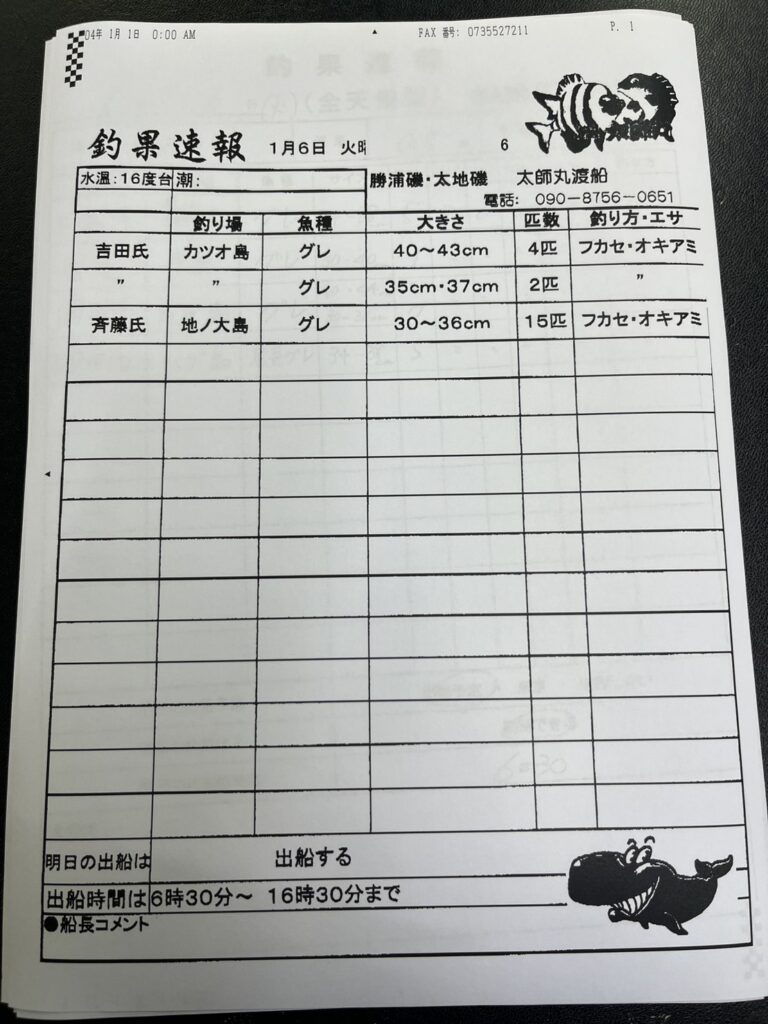 04年 1月 1日 0:00 AM FAX 番号: 0735527211 P. 1
釣果速報 1月6日 火曜 6
水温:16度台 潮: 勝浦磯・太地磯 太師丸渡船
電話: 090-8756-0651
釣り場 魚種 大きさ 匹数 釣り方・エサ
吉田氏 カツオ島 グレ 40〜43cm 4匹 フカセ・オキアミ
〃 〃 グレ 35cm・37cm 2匹 〃
斉藤氏 地ノ大島 グレ 30〜36cm 15匹 フカセ・オキアミ
明日の出船は 出船する
出船時間は 6時30分〜 16時30分まで
●船長コメント